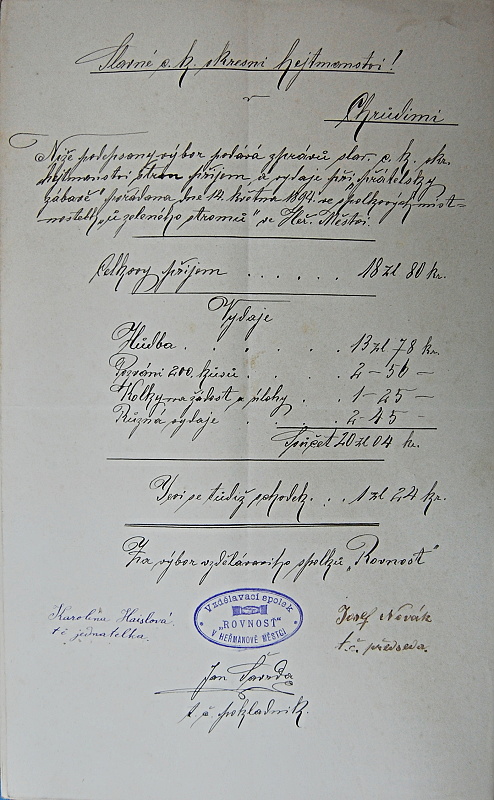 Slavné c. k. okresní hejtmanství!
v
Chrudimi
Níže podepsaný výbor podává zprávu slav. c. k. okr.
hejtmanství stran příjem a vydaje při „přátelsky
zábavě“ pořádana dne 14. května 1894. ve spolkových míst-
nostech „u zeleného stromu“ ve Heř. Městci.
Celkovy příjem . . . . . . 18 zl 80 kr.
Vydaje
Hudba . . . . . 13 zl 78 kr.
Pozvání 200. kusů . . . 2 – 56 –
Kolky na žádost a přílohy . . 1 – 25 –
Různá vydaje . . . 2 – 45 –
Součet 20 zl 04 kr.
Jeví se tudíž schodek . . 1 zl 24 kr.
Za výbor vzdělávacího spolku „Rovnost“
Karolina Haislová
t. č. jednatelka.
Vzdělávací spolek
„ROVNOST“
V HEŘMANOVĚ MĚSTCI
Josef Novák
t. č. předseda.
Jan
t. č. pokladník.